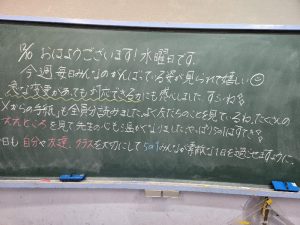 おはようございます!水曜日です。
今週毎日みんなのがんばっている姿が見られて嬉しい
急な変更があっても対応できる力にも感心しました。すごいね!
Xからの手紙も全員分読みました。よく友だちのことを見ているね。たくさんの
ところを見て先生の心も温かくなりました。やっぱり5の1はすてき
日も自分や友達、クラスを大切にして5の1みんなが素敵な1日を過ごせますように。